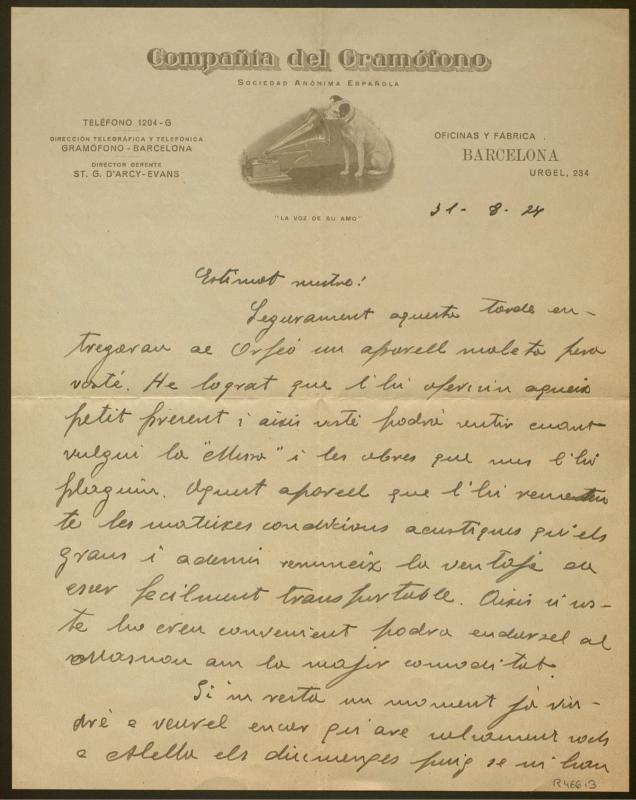 Compañia del Gramófono
SOCIEDAD ANÓNIMA ESPAÑOLA
TELÉFONO 1204-G
DIRECCIÓN TELEGRÁFICA Y TELEFÓNICA
GRAMÓFONO - BARCELONA
DIRECTOR GERENTE
ST. G. D'ARCY-EVANS
OFICINAS Y FÁBRICA
BARCELONA
URGEL, 234
"LA VOZ DE SU AMO"
31 - 8 - 24
Estimat mestre!
Segurament aquesta tarde en-
tregaran al Orfeó un aparell maleta pera
vosté. He lograt que l'hi oferissin aqueix
petit present i aixis vosté podrá sentir cuant
vulgui la "Missa" i les obres que mes l'hi
plaguin. Aquest aparell que l'hi
te les mateixes condicions acustiques qu'els
grans i ademés reuneix la ventaje de
esser facilment transportable. Aixis si vos-
te ho creu convenient podra endursel al
Masnou am la major comoditat.
Si'm resta un moment ja vin-
dré a veurel encar qu'are solsament
a Alella els diumenges puig se m'han
R466.3